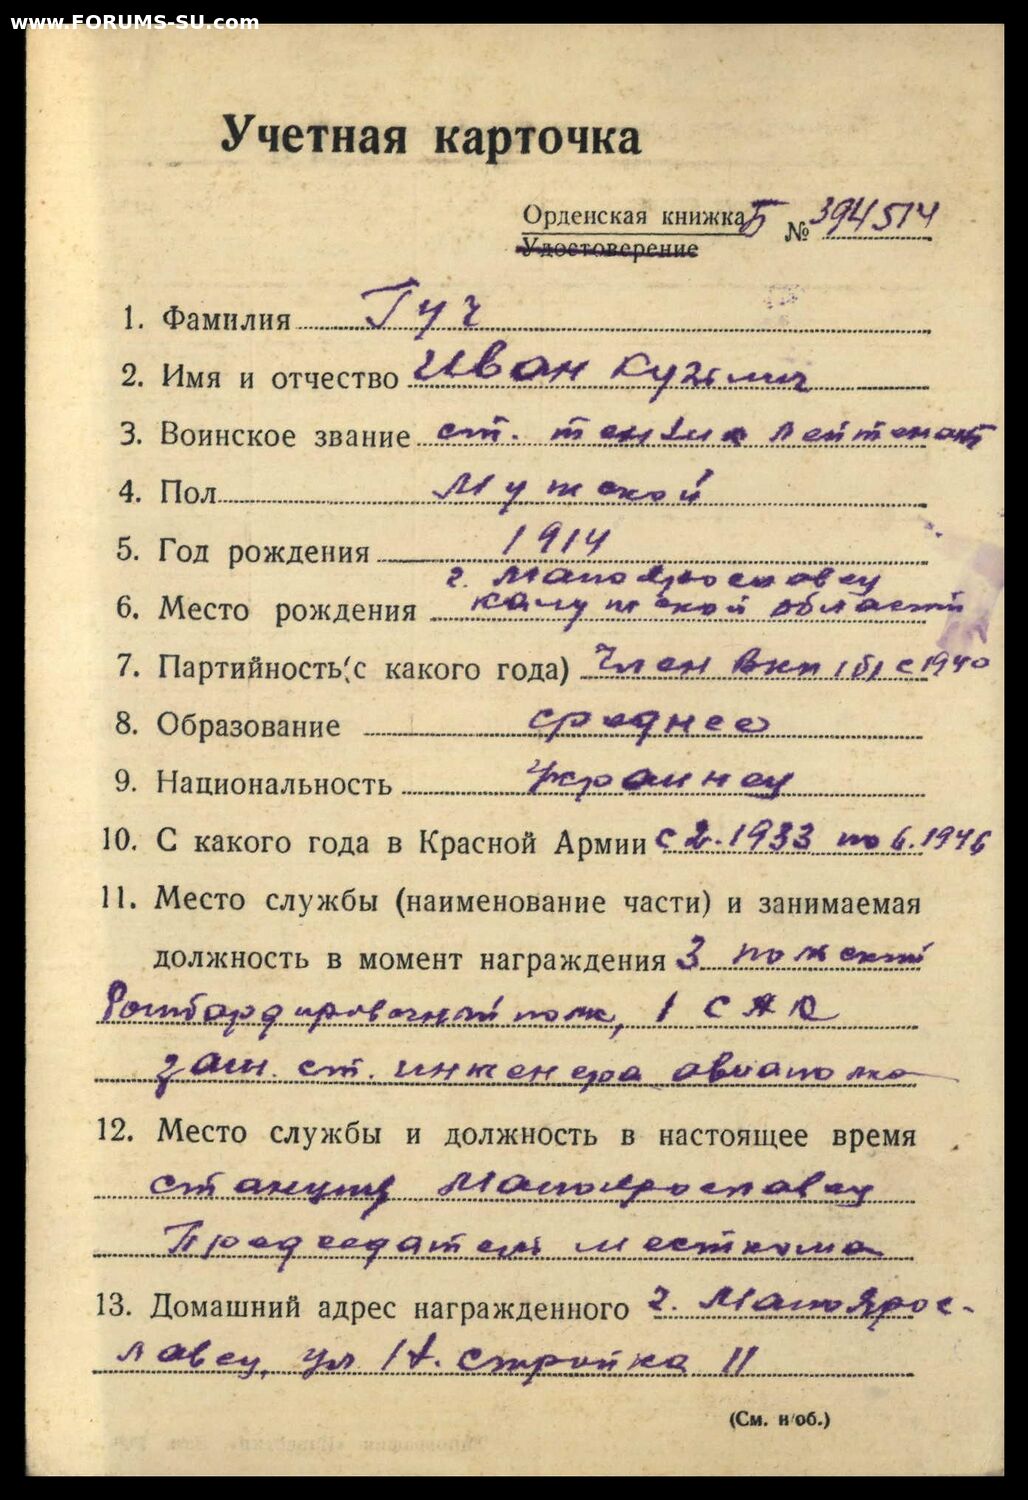 www.FORUMS-SU.com
Учетная карточка
Орденская книжка Б № 394514
Удостоверение
1. Фамилия Гуч
2. Имя и отчество Иван Кузьмич
3. Воинское звание ст. техник лейтенант
4. Пол Мужской
5. Год рождения 1914
г. Малоярославец
6. Место рождения Калужской области
7. Партийность (с какого года) Член ВКП(б) с 1940
8. Образование среднее
9. Национальность Украинец
10. С какого года в Красной Армии с 2.1933 по 6.1946
11. Место службы (наименование части) и занимаемая
должность в момент награждения 3 польский
бомбардировочный полк, 1 САД
зам. ст. инженера авиаполка
12. Место службы и должность в настоящее время
станция Малоярославец
Председатель месткома
13. Домашний адрес награжденного г. Малоярос-
лавец, ул стройка 11
(См. н/об.)